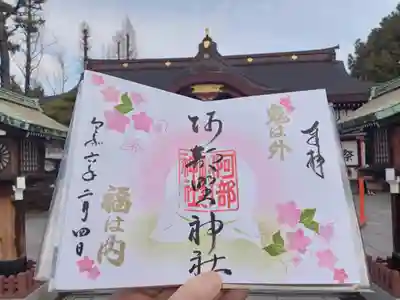 奉拝
鬼は外
阿部野神社
阿部
神社
福は内
令和六年
二月四日